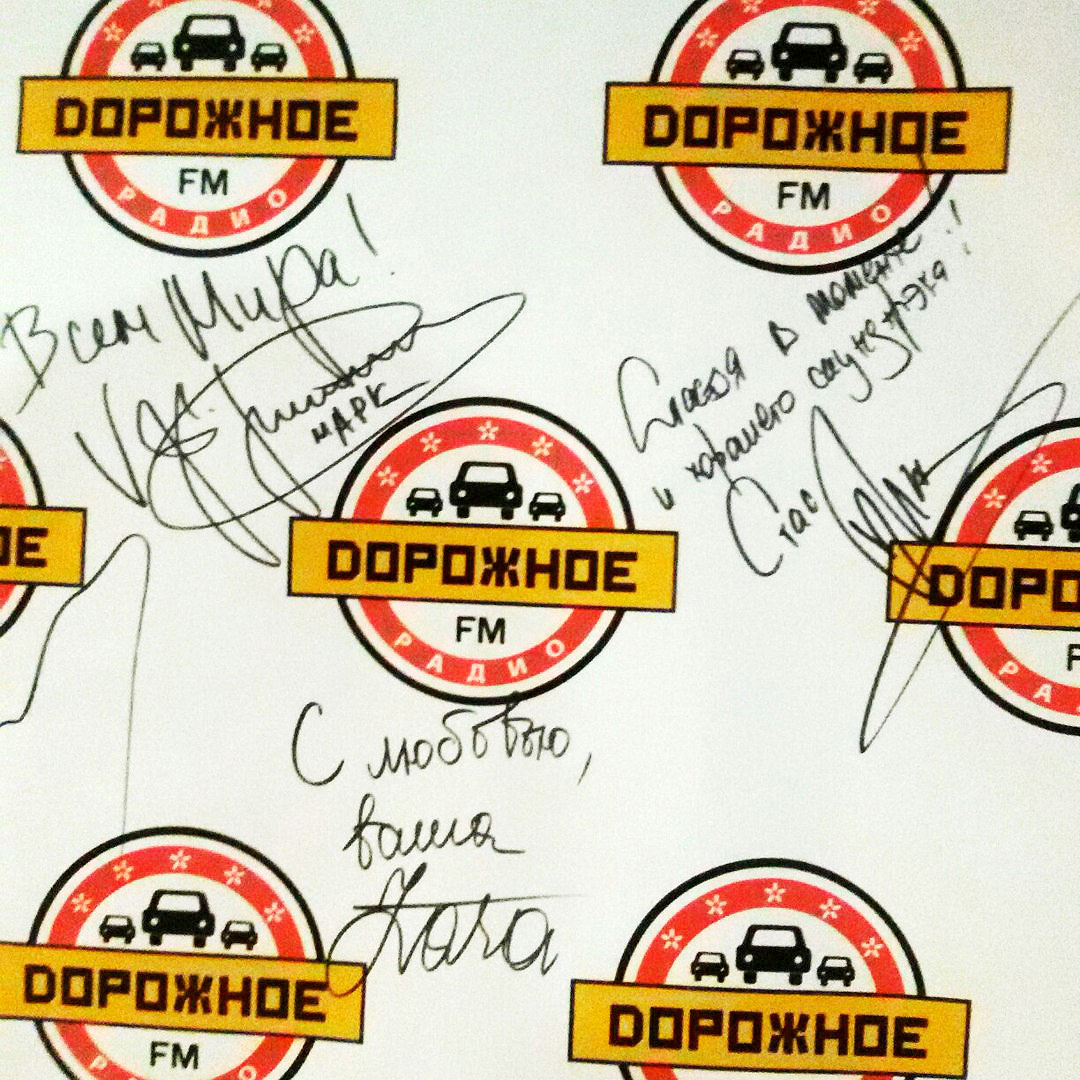 ДОРОЖНОЕ
FM
РАДИО
ДОРОЖНОЕ
FM
РАДИО
Всем Мира!
МАРК
в моменте!
и хорошего саундтрэка!
Стас
ОЕ
ДОРОЖНОЕ
FM
РАДИО
ДОРО
F
РА
С любовью,
ваша
ДОРОЖНОЕ
FM
Р
О
ДОРОЖНОЕ